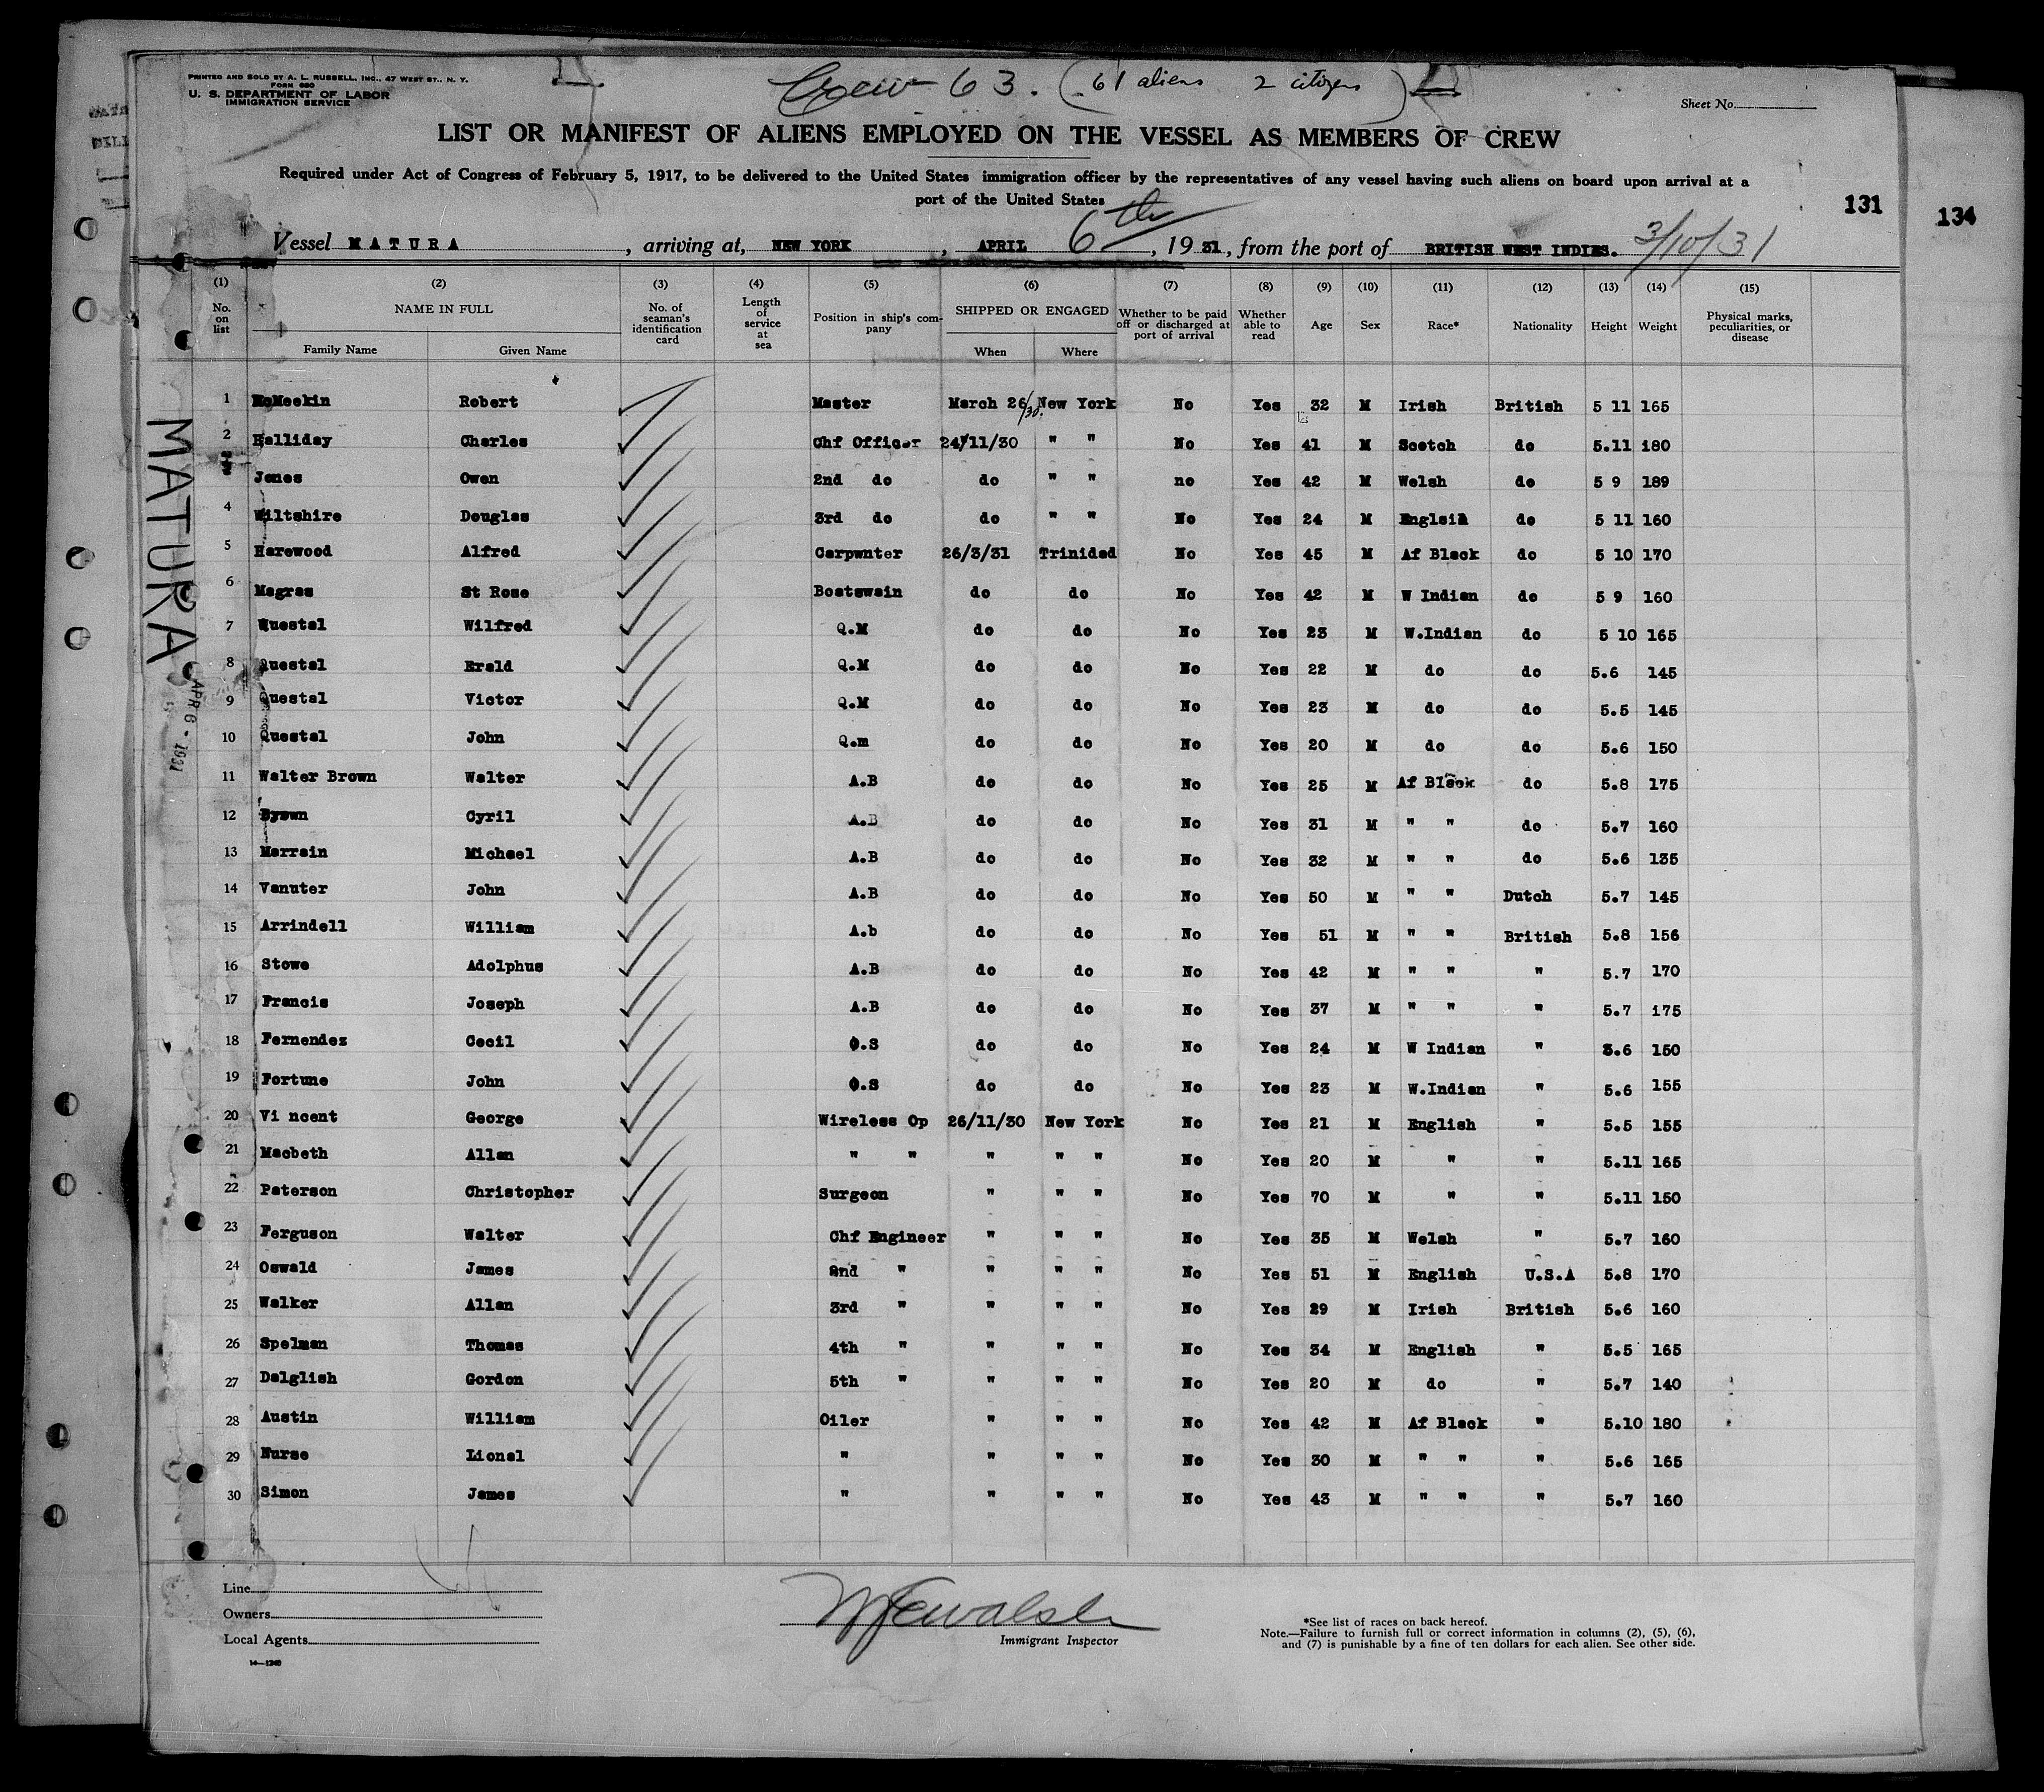 PRINTED AND SOLD BY A. L. RUSSELL, INC., 47 WEST ST., N. Y.
FORM 680
U. S. DEPARTMENT OF LABOR
IMMIGRATION SERVICE
Crew 63. (61 aliens 2 citizens)
Sheet No.
LIST OR MANIFEST OF ALIENS EMPLOYED ON THE VESSEL AS MEMBERS OF CREW
Required under Act of Congress of February 5, 1917, to be delivered to the United States immigration officer by the representatives of any vessel having such aliens on board upon arrival at a
port of the United States
131
134
Vessel MATURA, arriving at, NEW YORK, APRIL 6th, 19 31, from the port of BRITISH WEST INDIES. 3/10/31
(1) (2) (3) (4) (5) (6) (7) (8) (9) (10) (11) (12) (13) (14) (15)
No. on list NAME IN FULL Family Name Given Name No. of seaman's identification card Length of service at sea Position in ship's company SHIPPED OR ENGAGED When Where Whether to be paid off or discharged at port of arrival Whether able to read Age Sex Race* Nationality Height Weight Physical marks, peculiarities, or disease
1 McMeekin Robert Master March 26/30. New York No Yes 32 M Irish British 5 11 165
2 Halliday Charles Chf Officer 24/11/30 " " No Yes 41 M Scotch do 5.11 180
Jones Owen 2nd do do " " no Yes 42 M Welsh do 5 9 189
4 Wiltshire Douglas 3rd do do " " No Yes 24 M Englsih do 5 11 160
5 Harewood Alfred Carpwnter 26/3/31 Trinidad No Yes 45 M Af Black do 5 10 170
6 Magras St Rose Boatswain do do No Yes 42 M W Indian do 5 9 160
7 Questal Wilfred Q.M do do No Yes 23 M W.Indian do 5 10 165
8 Questal Erald Q.M do do No Yes 22 M do do 5.6 145
9 Questal Victor Q.M do do No Yes 23 M do do 5.5 145
10 Questal John Q.m do do No Yes 20 M do do 5.6 150
11 Walter Brown Walter A.B do do No Yes 25 M Af Black do 5.8 175
12 Cyril A.B do do No Yes 31 M " " do 5.7 160
13 Marrain Michael A.B do do No Yes 32 M " " do 5.6 135
14 Vanuter John A.B do do No Yes 50 M " " Dutch 5.7 145
15 Arrindell William A.b do do No Yes 51 M " " British 5.8 156
16 Stowe Adolphus A.B do do No Yes 42 M " " " 5.7 170
17 Francis Joseph A.B do do No Yes 37 M " " " 5.7 175
18 Fernendez Cecil O.S do do No Yes 24 M W Indian " 5.6 150
19 Fortune John O.S do do No Yes 23 M W.Indian " 5.6 155
20 Vi ncent George Wireless Op 26/11/30 New York No Yes 21 M English " 5.5 155
21 Macbeth Allan " " " " " No Yes 20 M " " 5.11 165
22 Paterson Christopher Surgeon " " " No Yes 70 M " " 5.11 150
23 Ferguson Walter Chf Engineer " " " No Yes 35 M Welsh " 5.7 160
24 Oswald James 2nd " " " " No Yes 51 M English U.S.A 5.8 170
25 Walker Allan 3rd " " " " No Yes 29 M Irish British 5.6 160
26 Spelman Thomas 4th " " " " No Yes 34 M English " 5.5 165
27 Dalglish Gordon 5th " " " " No Yes 20 M do " 5.7 140
28 Austin William Oiler " " " No Yes 42 M Af Black " 5.10 180
29 Nurse Lional " " " " No Yes 30 M " " " 5.6 165
30 Simon James " " " " No Yes 43 M " " " 5.7 160
MATURA
APR 6 - 1931
Line
Owners
Local Agents
14—1240
Immigrant Inspector
*See list of races on back hereof.
Note.—Failure to furnish full or correct information in columns (2), (5), (6),
and (7) is punishable by a fine of ten dollars for each alien. See other side.